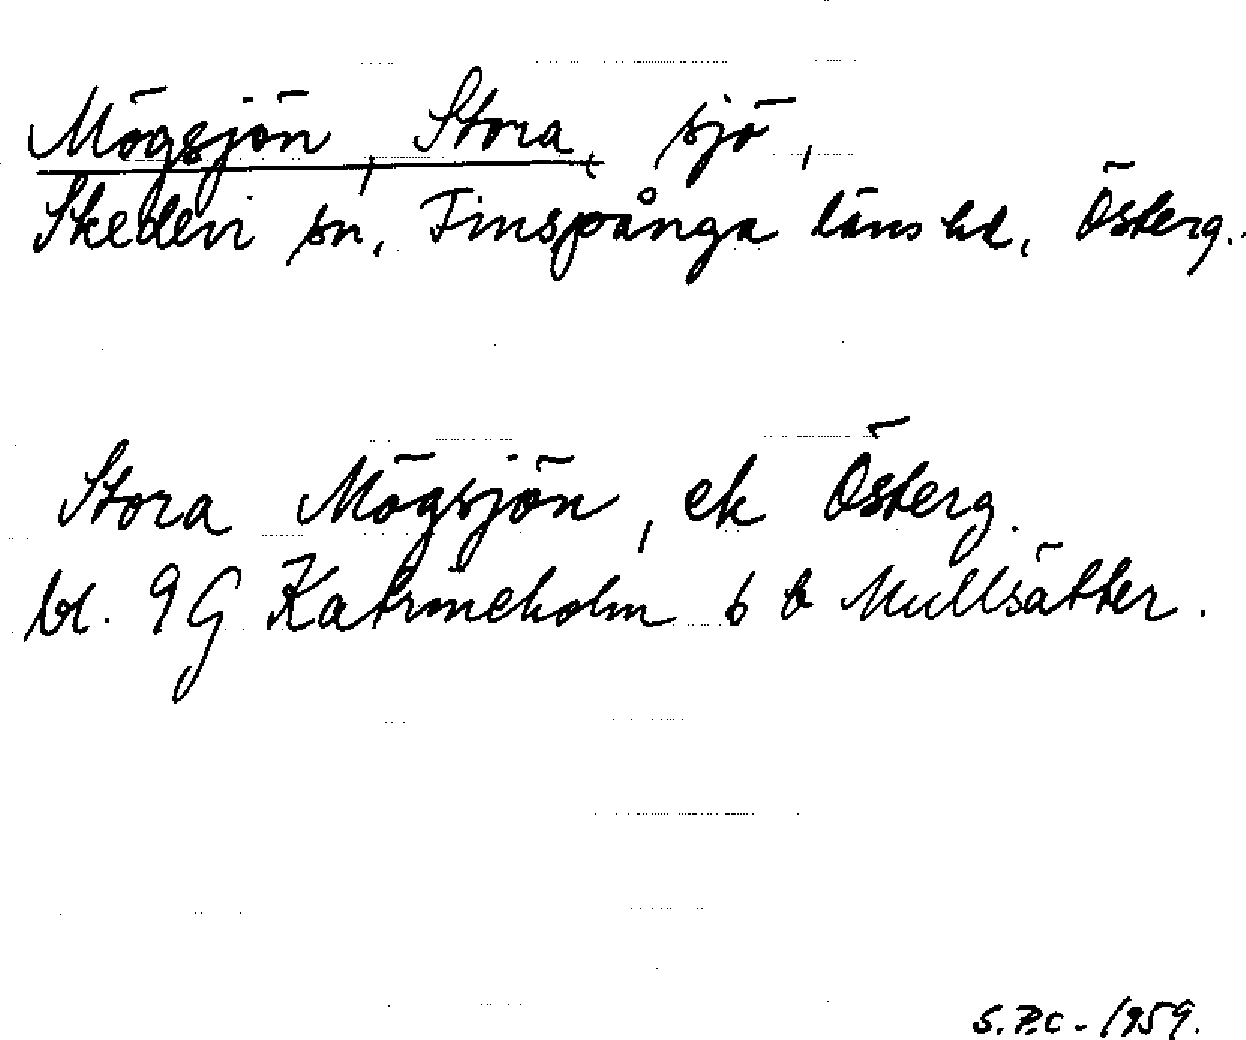 Mögsjön, Stora, sjö,
Skedevi sn, Finspånga läns hd, Österg.
Stora Mögsjön, ek Österg.
bl. 9G Katrineholm 6 b Mullsätter.
S.P.C - 1959.